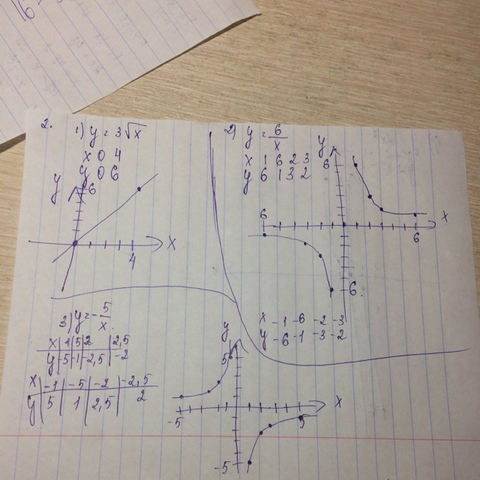 2.
1) y = 3√x
x 0 4
y 0 6
y
6
x
4
2) y = 6/x
x 1 6 2 3
y 6 1 3 2
y
6
6
x
6
6
x -1 -6 -2 -3
y -6 -1 -3 -2
3) y = - 5/x
x 1 5 2 2,5
y -5 -1 -2,5 -2
x -1 -5 -2 -2,5
y 5 1 2,5 2
y
5
-5
5
x
-5